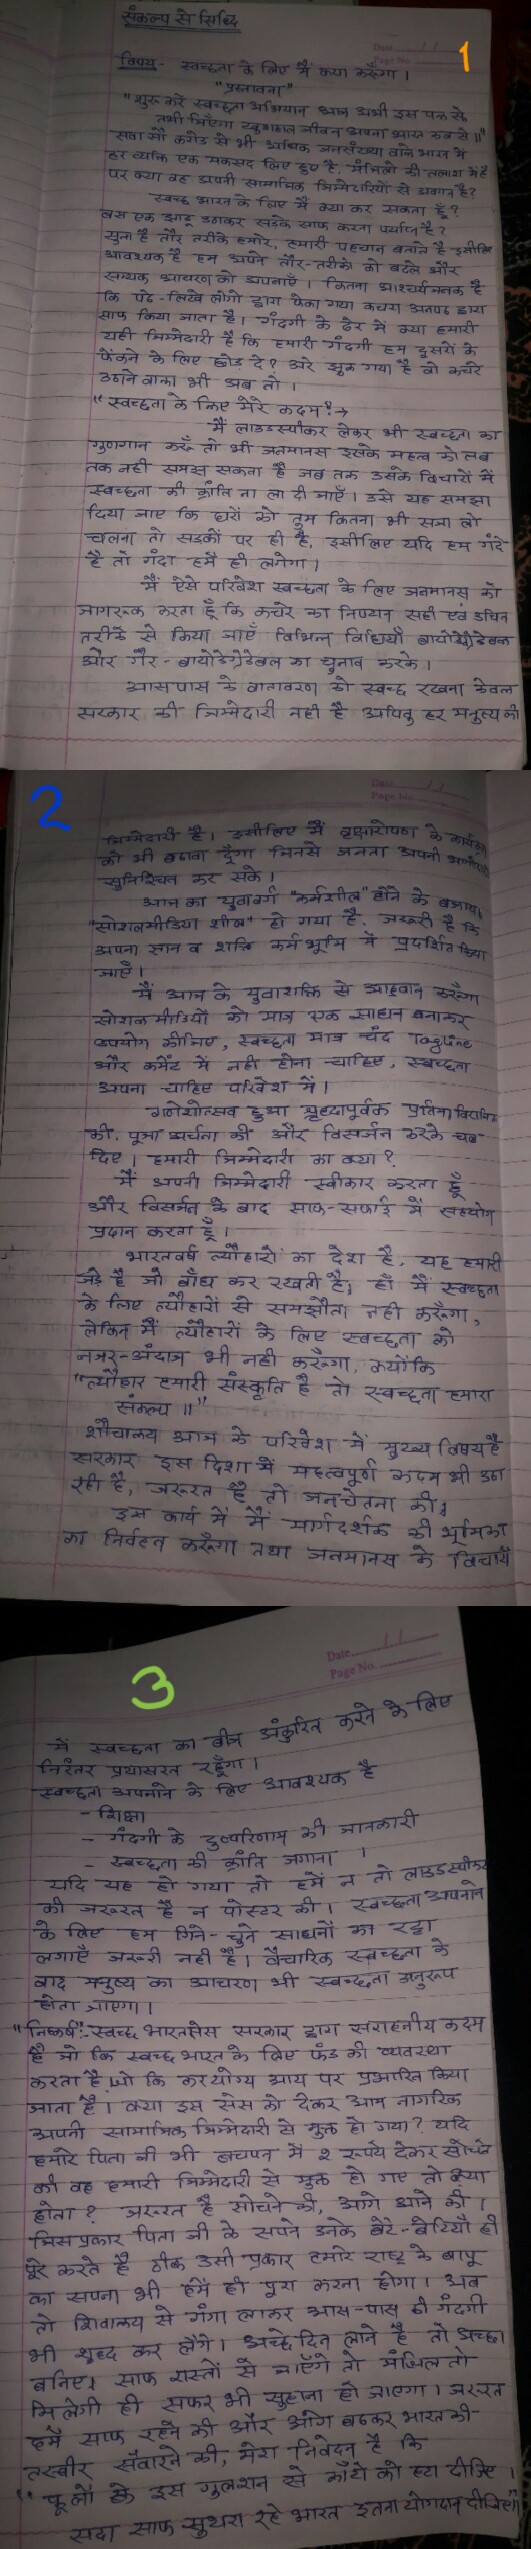 संकल्प से सिध्दि
Date / /
Page No.
1
विषय- स्वच्छता के लिए मैं क्या करूँगा।
"प्रस्तावना"
"शुरू करें स्वच्छता अभियान आज अभी इस पल से
तभी जिएगा खुशहाल जीवन अपना भारत कल से॥"
सवा सौ करोड़ से भी अधिक जनसंख्या वाले भारत में
हर व्यक्ति एक मकसद लिए हुए है, मंजिलों की तलाश में है
पर क्या वह अपनी सामाजिक जिम्मेदारियों से अवगत है?
स्वच्छ भारत के लिए मैं क्या कर सकता हूँ?
बस एक झाडू उठाकर सड़के साफ करना पर्याप्त है?
सुना है तौर तरीके हमारे, हमारी पहचान बताते है इसीलिए
आवश्यक है हम अपने तौर-तरीकों को बदले और
सभ्यक आचरण को अपनाएँ। कितना आश्चर्यजनक है
कि पढे-लिखे लोगों द्वारा फेंका गया कचरा अनपढ द्वारा
साफ किया जाता है। गंदगी के ढेर में क्या हमारी
यही जिम्मेदारी है कि हमारी गंदगी हम दूसरों के
फेंकने के लिए छोड़ दे? अरे झुक गया है वो कचरे
उठाने वाला भी अब तो।
"स्वच्छता के लिए मेरे कदम?→
मैं लाउडस्पीकर लेकर भी स्वच्छता का
गुणगान करूँ तो भी जनमानस इसके महत्व को तब
तक नही समझ सकता है जब तक उसके विचारों में
स्वच्छता की क्रांति ना ला दी जाएँ। उसे यह समझा
दिया जाए कि घरों को तुम कितना भी सजा लो
चलना तो सड़कों पर ही है, इसीलिए यदि हम गंदे
है तो गंदा हमें ही लगेगा।
मैं ऐसे परिवेश स्वच्छता के लिए जनमानस को
जागरूक करता हूँ कि कचरे का निपयन सही एवं उचित
तरीके से किया जाएँ विभिन्न विधियाँ बायोडेग्रेडेबल
और गैर-बायोडेग्रेडेबल का चुनाव करके।
आसपास के वातावरण को स्वच्छ रखना केवल
सरकार की जिम्मेदारी नही है अपितु हर मनुष्य की
Date / /
Page No.
2
जिम्मेदारी है। इसीलिए मैं वृक्षारोपण के कार्यक्रम
को भी बढावा दूँगा जिनसे जनता अपनी भागीदारी
सुनिश्चित कर सके।
आज का युवावर्ग "कर्मशील" होने के बजाय,
"सोशलमीडिया शील" हो गया है, जरूरी है कि
अपना ज्ञान व शक्ति कर्मभूमि में प्रदर्शित किया
जाएँ।
मैं आज के युवाशक्ति से आहवान करूँगा
सोशल मीडियों को मात्र एक साधन बनाकर
उपयोग कीजिए, स्वच्छता मात्र चंद Tagline
और कमेंट में नही होना चाहिए, स्वच्छता
अपना चाहिए परिवेश में।
गणेशोत्सव हुआ श्रृध्दापूर्वक प्रतिमा विराजित
की, पूजा अर्चना की और विसर्जन करके चल
दिए। हमारी जिम्मेदारी का क्या?
मैं अपनी जिम्मेदारी स्वीकार करता हूँ
और विसर्जन के बाद साफ-सफाई में सहयोग
प्रदान करता हूँ।
भारतवर्ष त्यौहारों का देश है, यह हमारी
जड़े है जो बाँध कर रखती है, हाँ मैं स्वच्छता
के लिए त्यौहारों से समझौता नही करूँगा,
लेकिन मैं त्यौहारों के लिए स्वच्छता को
नजर-अंदाज भी नही करूँगा, क्योंकि
"त्यौहार हमारी संस्कृति है तो स्वच्छता हमारा
संकल्प॥"
शौचालय आज के परिवेश में मुख्य विषय है
सरकार इस दिशा में महत्वपूर्ण कदम भी उठा
रही है, जरूरत है तो जनचेतना की।
इस कार्य में मैं मार्गदर्शक की भूमिका
का निर्वहन करूँगा तथा जनमानस के विचारों
Date / /
Page No.
3
में स्वच्छता का बीज अंकुरित करने के लिए
निरंतर प्रयासरत रहूँगा।
स्वच्छता अपनाने के लिए आवश्यक है
- शिक्षा
- गंदगी के दुष्परिणाम की जानकारी
- स्वच्छता की क्रांति जगाना।
यदि यह हो गया तो हमें न तो लाउडस्पीकर
की जरूरत है न पोस्टर की। स्वच्छता अपनाने
के लिए हम गिने-चुने साधनों का रट्टा
लगाएँ जरूरी नही है। वैचारिक स्वच्छता के
बाद मनुष्य का आचरण भी स्वच्छता अनुरूप
होता जाएगा।
"निष्कर्ष":- स्वच्छ भारत सेस सरकार द्वारा सराहनीय कदम
है जो कि स्वच्छ भारत के लिए फंड की व्यवस्था
करता है, जो कि करयोग्य आय पर प्रभारित किया
जाता है। क्या इस सेस को देकर आम नागरिक
अपनी सामाजिक जिम्मेदारी से मुक्त हो गया? यदि
हमारे पिता जी भी बचपन में २ रूपये देकर सोचते
की वह हमारी जिम्मेदारी से मुक्त हो गए तो क्या
होता? जरूरत है सोचने की, आगे आने की।
जिस प्रकार पिता जी के सपने उनके बेटे-बेटियाँ ही
पूरे करते है ठीक उसी प्रकार हमारे राष्ट्र के बापू
का सपना भी हमें ही पूरा करना होगा। अब
तो शिवालय से गंगा लाकर आस-पास की गंदगी
भी शुध्द कर लेंगे। अच्छे दिन लाने है तो अच्छा
बनिए। साफ रास्तों से जाएँगे तो मंजिल तो
मिलेगी ही सफर भी सुहाना हो जाएगा। जरूरत
हमें साफ रहने की और आगे बढकर भारत की
तस्वीर सँवारने की, मेरा निवेदन है कि
"फूलों के इस गुलशन से काँटो को हटा दीजिए।
सदा साफ सुथरा रहे भारत इतना योगदान दीजिए॥"